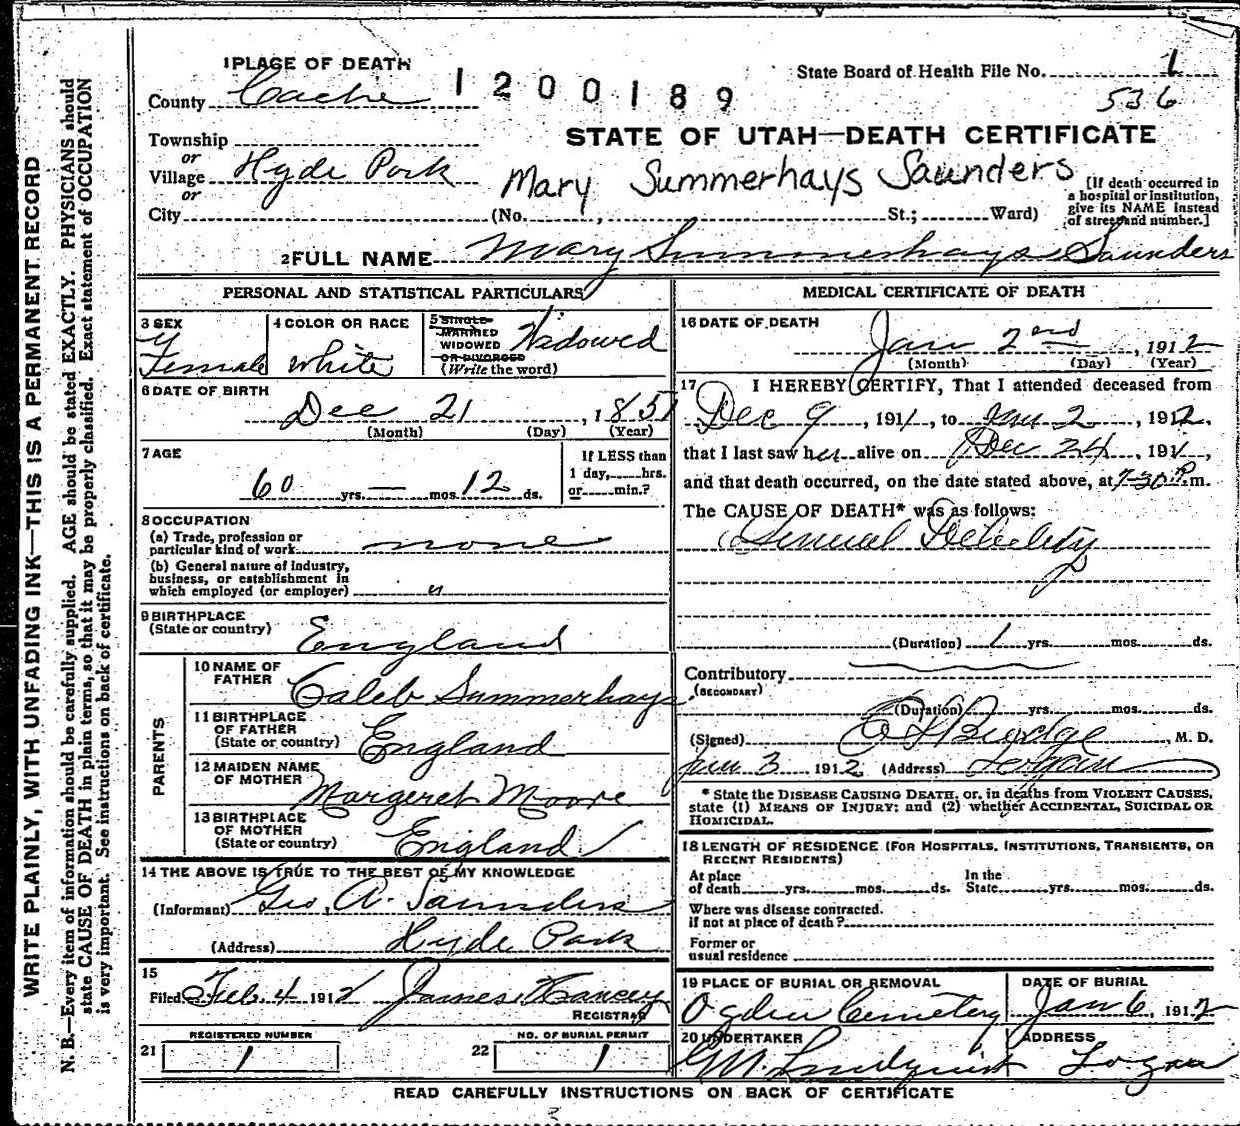 1 PLACE OF DEATH
State Board of Health File No. 1
County Cache
1200189
536
STATE OF UTAH—DEATH CERTIFICATE
Township
or
Village Hyde Park
Mary Summerhays Saunders
or
City (No. , St.; Ward)
[If death occurred in a hospital or institution, give its NAME instead of street and number.]
2 FULL NAME Mary Summerhays Saunders
PERSONAL AND STATISTICAL PARTICULARS
3 SEX
Female
4 COLOR OR RACE
White
5 SINGLE
MARRIED
WIDOWED
OR DIVORCED
(Write the word)
Widowed
6 DATE OF BIRTH
Dec 21, 1851
(Month) (Day) (Year)
7 AGE
60 yrs. — mos. 12 ds.
If LESS than
1 day, hrs.
or min.?
8 OCCUPATION
(a) Trade, profession or
particular kind of work none
(b) General nature of industry,
business, or establishment in
which employed (or employer) "
9 BIRTHPLACE
(State or country) England
PARENTS
10 NAME OF
FATHER Caleb Summerhays
11 BIRTHPLACE
OF FATHER
(State or country) England
12 MAIDEN NAME
OF MOTHER Margeret Moore
13 BIRTHPLACE
OF MOTHER
(State or country) England
14 THE ABOVE IS TRUE TO THE BEST OF MY KNOWLEDGE
(Informant) Geo. A. Saunders
(Address) Hyde Park
15
Filed Feb. 4 1912 James Hancey
REGISTRAR
REGISTERED NUMBER
21 1
NO. OF BURIAL PERMIT
22 1
MEDICAL CERTIFICATE OF DEATH
16 DATE OF DEATH
Jan 2nd, 1912
(Month) (Day) (Year)
17 I HEREBY CERTIFY, That I attended deceased from
Dec 9, 1911, to Jan 2, 1912,
that I last saw her alive on Dec 24, 1911,
and that death occurred, on the date stated above, at 7-30 P.m.
The CAUSE OF DEATH* was as follows:
Debelity
(Duration) 1 yrs. mos. ds.
Contributory
(SECONDARY)
(Duration) yrs. mos. ds.
(Signed) Budge, M. D.
Jan 3 1912 (Address) Logan
* State the DISEASE CAUSING DEATH, or, in deaths from VIOLENT CAUSES,
state (1) MEANS OF INJURY; and (2) whether ACCIDENTAL, SUICIDAL OR
HOMICIDAL.
18 LENGTH OF RESIDENCE (FOR HOSPITALS, INSTITUTIONS, TRANSIENTS, OR
RECENT RESIDENTS)
At place
of death yrs. mos. ds.
In the
State yrs. mos. ds.
Where was disease contracted.
if not at place of death?
Former or
usual residence
19 PLACE OF BURIAL OR REMOVAL
Ogden Cemetery
DATE OF BURIAL
Jan 6, 1912
20 UNDERTAKER
G.M. Lindquist
ADDRESS
Logan
READ CAREFULLY INSTRUCTIONS ON BACK OF CERTIFICATE
WRITE PLAINLY, WITH UNFADING INK—THIS IS A PERMANENT RECORD
N. B.—Every item of information should be carefully supplied. AGE should be stated EXACTLY. PHYSICIANS should
state CAUSE OF DEATH in plain terms, so that it may be properly classified. Exact statement of OCCUPATION
is very important. See instructions on back of certificate.